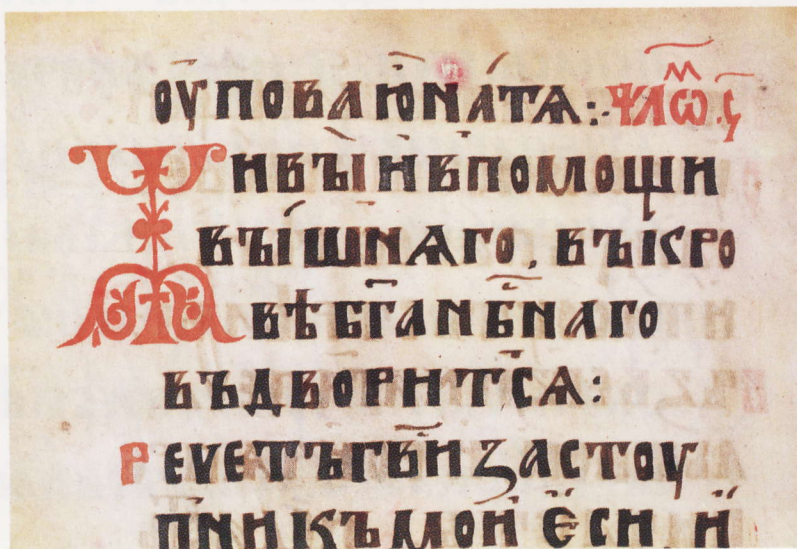 оуповаюнатѧ:· ѱⷧ҇ал҄ѡⷨ. ч҃
Живꙑи въ помощи
въішнѧго, въ кро
вѣ бг҃а нб҃наго
въдворитсѧ:
Речетъ гв҃и застоу
пник мои ѥси. и